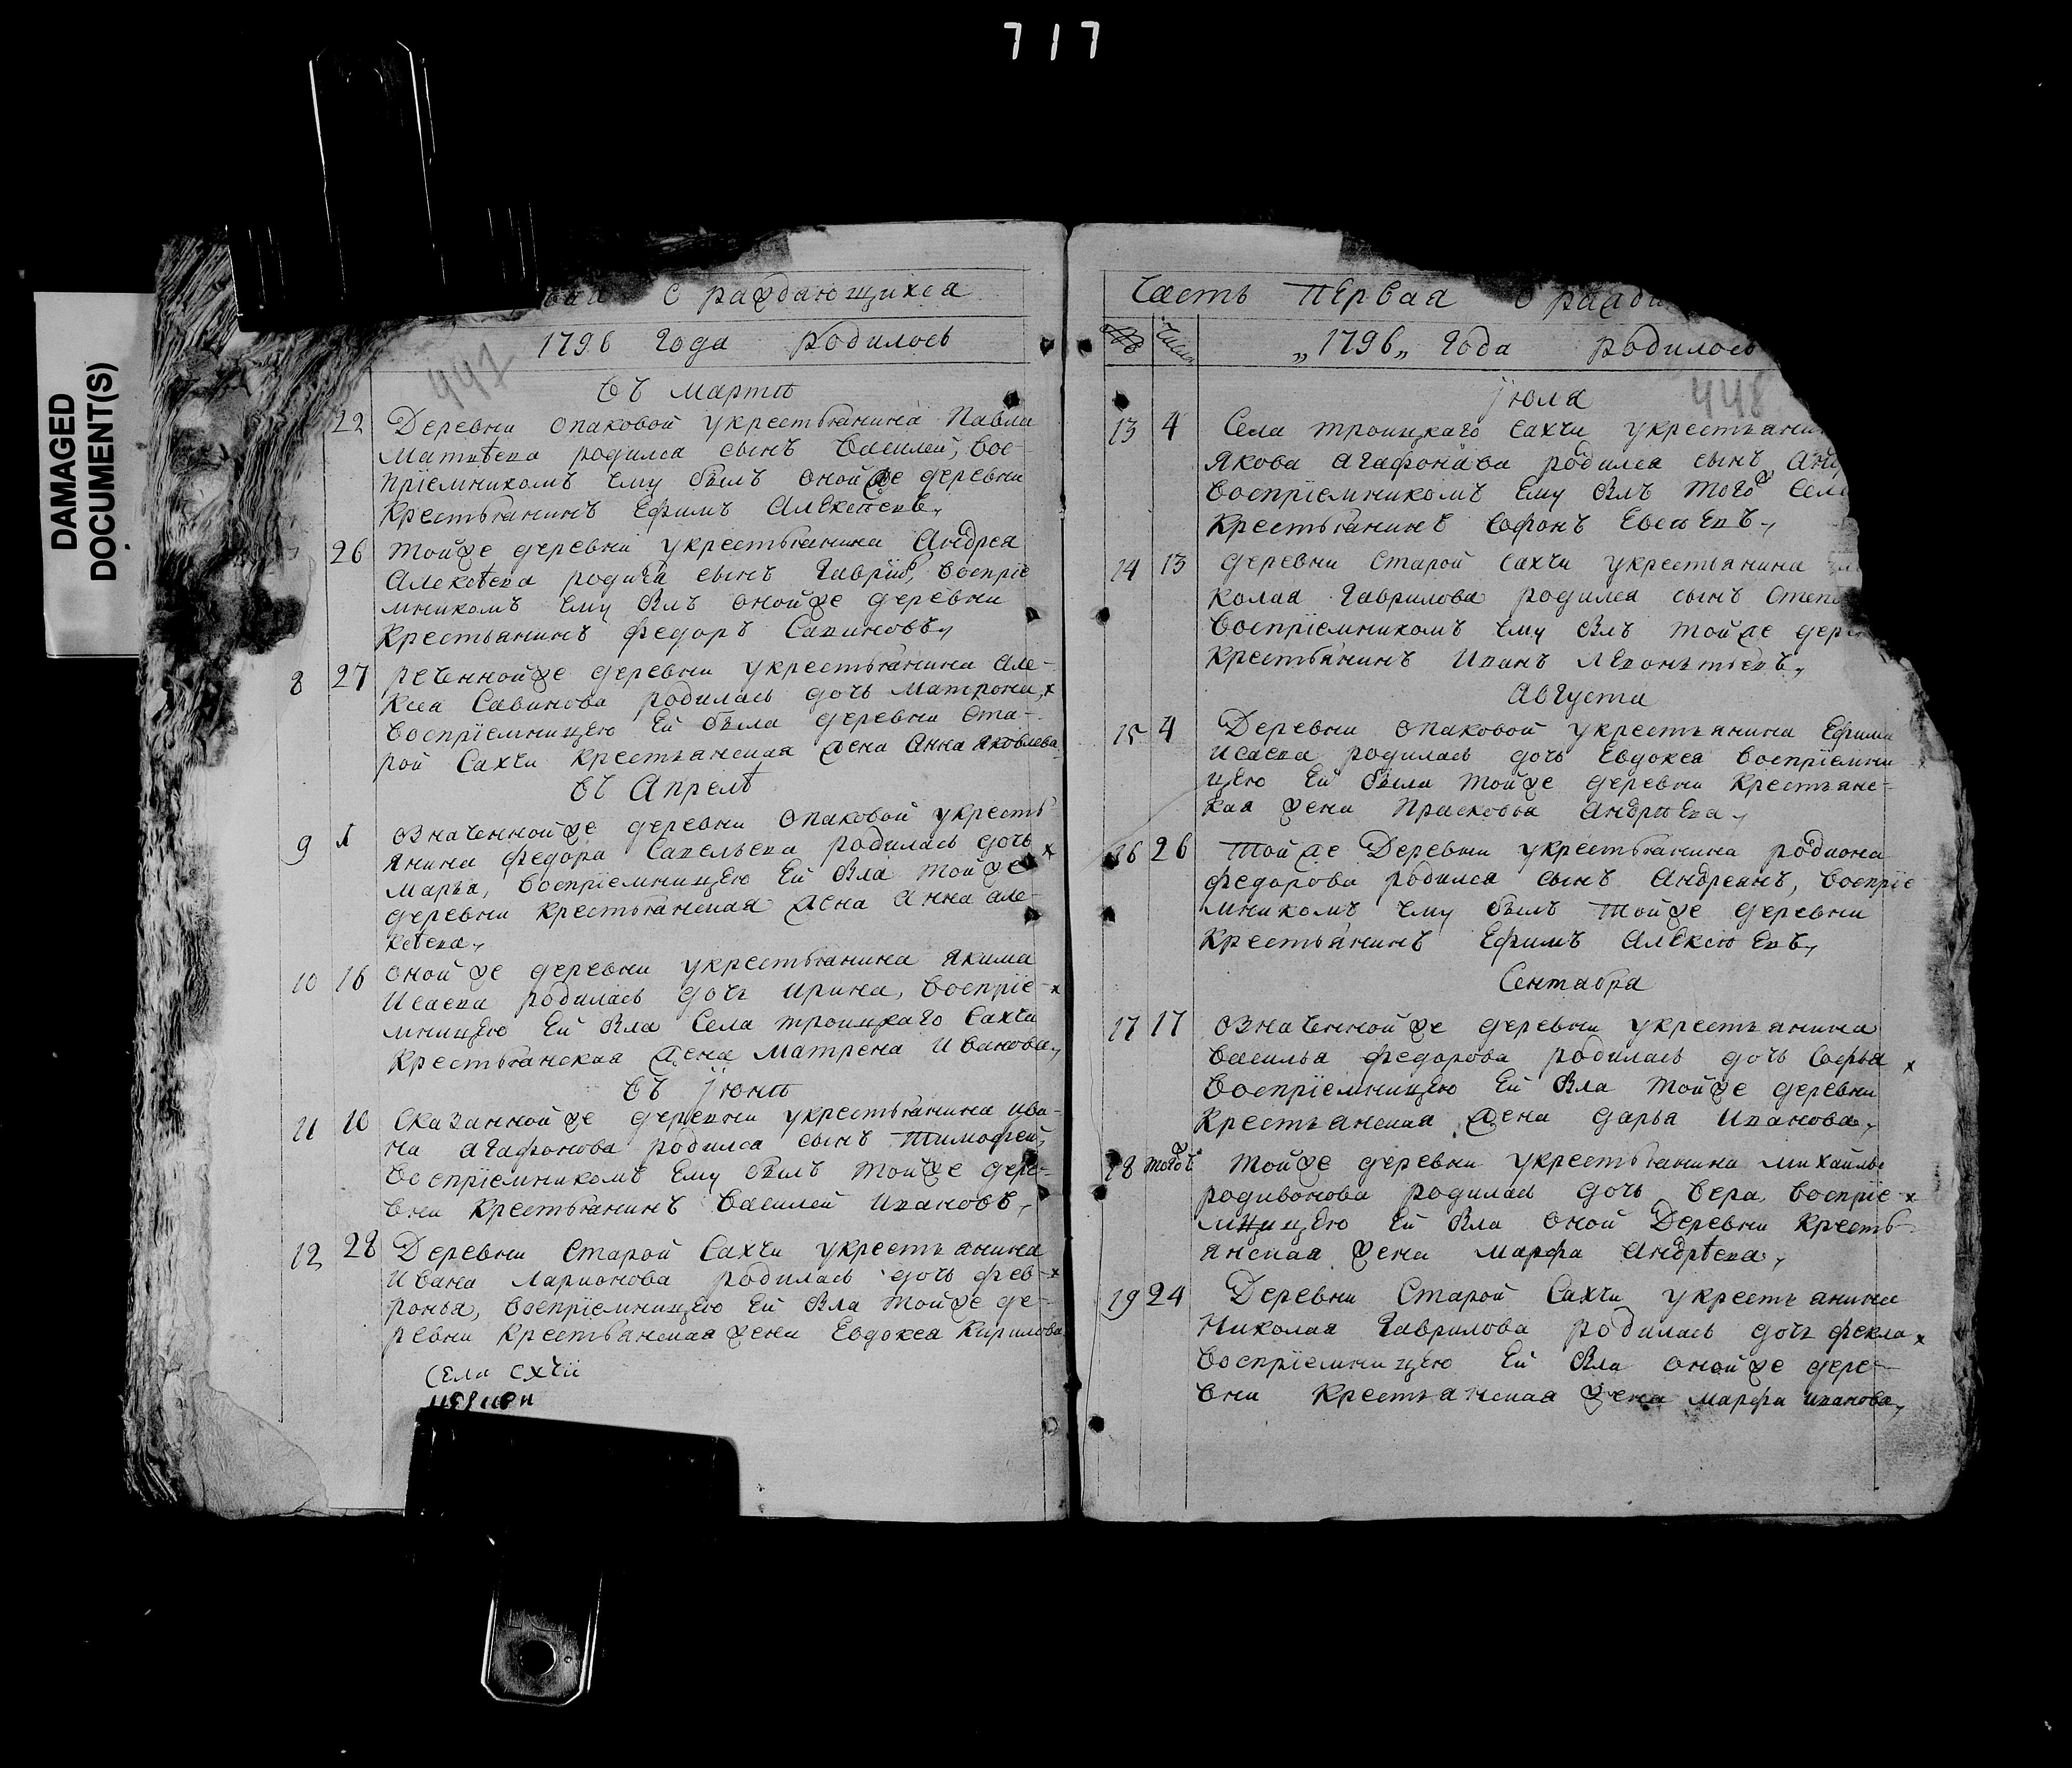 717
DAMAGED
DOCUMENT(S)
о раждающихса
1796 Года родилось
447
въ Мартѣ
22 Деревни опаковой укрестьянина Павла
Матвѣева родился сынъ Василей, вос-
пріемникомъ ему былъ оной же деревни
крестьянинъ Ефимъ Алексѣевъ,
26 тойже деревни укрестьянина Андрея
Алексѣева родился сынъ Гаврiилъ, воспріе
мникомъ ему былъ онойже деревни
крестьянинъ Федоръ Савиновъ,
8 27 реченнойже деревни укрестьянина Але-
ксѣя Савинова родилась дочь Матрона, x
воспріемницею ей была деревни Ста-
рой Сахчи крестьянская жена Анна Яковлева
въ Апрелѣ
9 1 означеннойже деревни опаковой укресть-
янина Федора Савельева родилась дочь x
Марья, воспріемницею ей была тойже
деревни крестьянская жена Анна але-
ксѣева,
10 16 оной же деревни укрестьянина якима
Исаева родилась дочь Ирина, воспріе- x
мницею ей была Села троицкаго Сахчи
крестьянская жена Матрена Иванова,
въ Їюнѣ
11 10 Сказаннойже деревни укрестьянина ива-
на агафонова родился сынъ тимофей,
воспріемникомъ ему былъ тойже дере-
вни крестьянинъ Василей Ивановъ,
12 28 Деревни Старой Сахчи укрестьянина
Ивана Ларионова родилась дочь фев- x
ронья, воспріемницею ей была тойже де-
ревни крестьянская жена Евдокея Кирилова
Села Схчи
Часть Первая о
Числа „1796„ Года родилось
Їюля 448
13 4 Села троицкаго Сахчи
Якова агафонова родился сынъ
воспріемникомъ ему былъ того
крестьянинъ Софонъ Евсѣевъ,
14 13 деревни Старой Сахчи укрестьянина
колая Гаврилова родился сынъ
воспріемникомъ ему былъ тойже
крестьянинъ Иванъ Леонтьевъ,
Августа
15 4 Деревни опаковой укрестьянина Ефима
Исаева родилась дочь Евдокея воспріемни
цею ей была тойже деревни крестьянс-
кая жена Прасковья Андрѣева,
16 26 тойже Деревни укрестьянина родиона
Федорова родился сынъ Андреянъ, воспріе
мникомъ ему былъ тойже деревни
крестьянинъ Ефимъ Алексѣевъ,
Сентабра
17 17 означеннойже деревни укрестьянина
Василья Федорова родилась дочь Софья x
воспріемницею ей была тойже деревни
крестьянская жена дарья Иванова,
18 тогож тойже деревни укрестьянина Михайлы
родивонова родилась дочь Вера, воспріе- x
мницею ей была оной Деревни кресть-
янская жена Марфа Андрѣева,
19 24 Деревни Старой Сахчи укрестьянина
Николая Гаврилова родилась дочь фекла x
воспріемницею ей была онойже дере-
вни крестьянская жена Марфа Иванова,